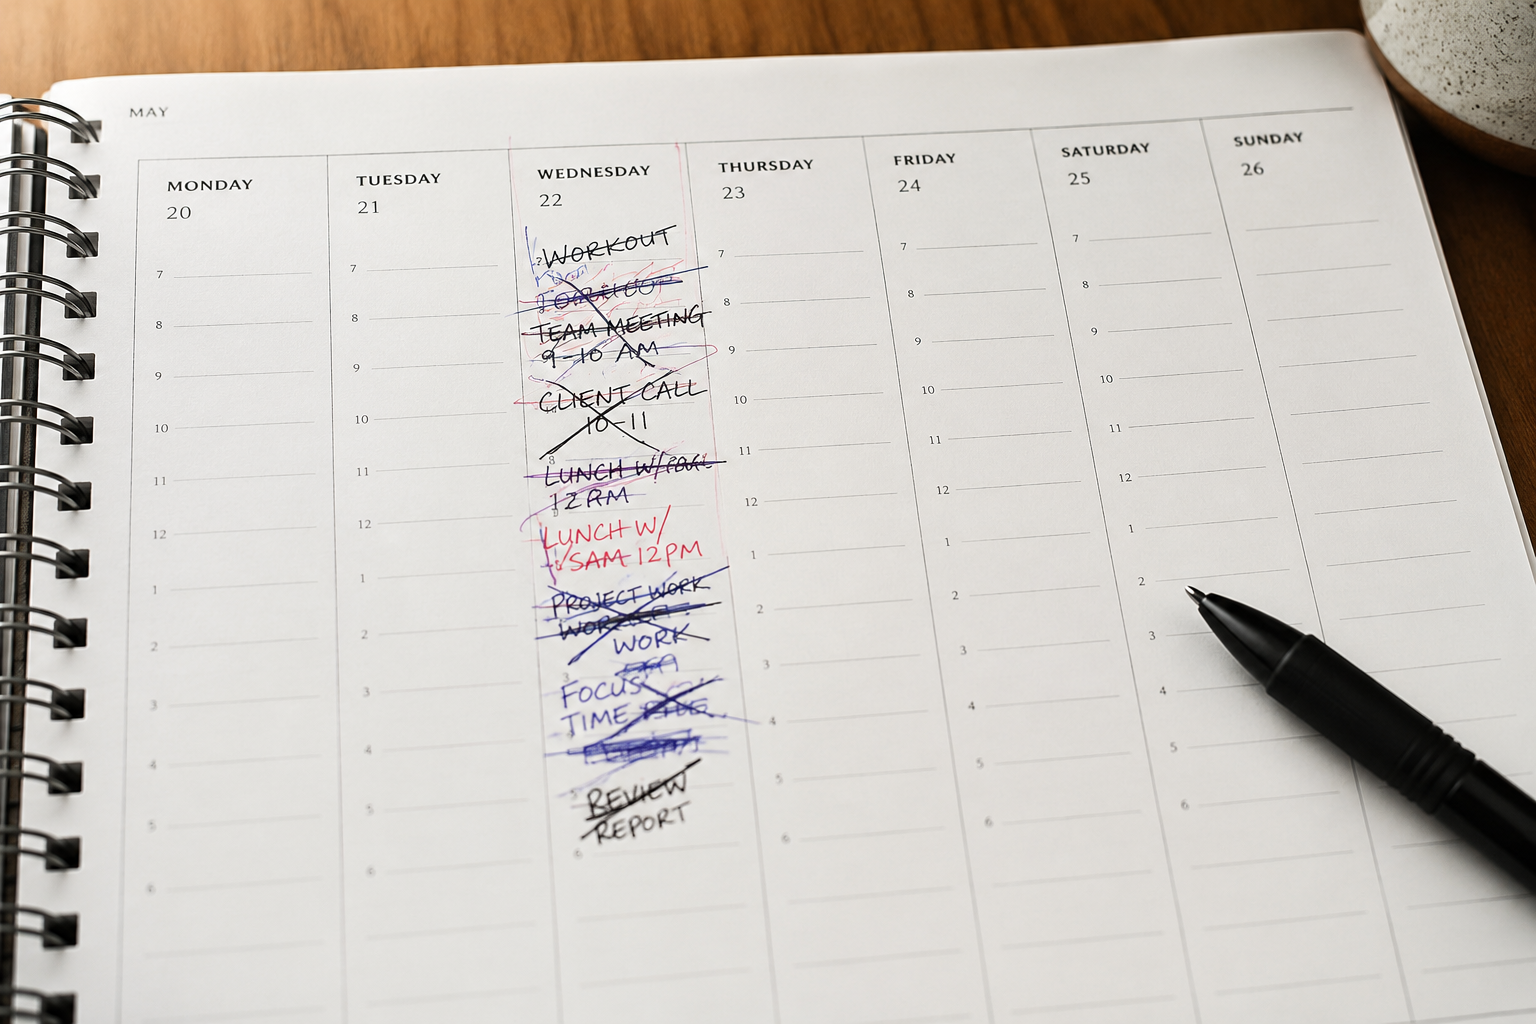 MAY
MONDAY TUESDAY WEDNESDAY THURSDAY FRIDAY SATURDAY SUNDAY
20 21 22 23 24 25 26
WORKOUT
TEAM MEETING
9-10 AM
CLIENT CALL
10-11
LUNCH W/
12
LUNCH W/
SAM 12PM
PROJECT WORK
WORK
FOCUS
TIME
REVIEW
REPORT
7 7 7 7 7
8 8 8 8 8
9 9 9 9 9
10 10 10 10 10
11 11 11 11 11
12 12 12 12 12
1 1 1 1 1
2 2 2 2 2
3 3 3 3 3
4 4 4 4 4
5 5 5 5 5
6 6 6 6 6 6